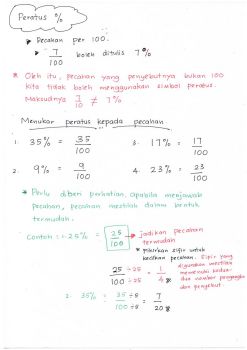 Peratus %
• Pecahan per 100.
• 7/100 boleh ditulis 7%
* Oleh itu, pecahan yang penyebutnya bukan 100
kita tidak boleh menggunakan simbol peratus.
Maksudnya 7/10 ≠ 7%
Menukar peratus kepada pecahan
1. 35% = 35/100
3. 17% = 17/100
2. 9% = 9/100
4. 23% = 23/100
* Perlu diberi perhatian, apabila menjawab
pecahan, pecahan mestilah dalam bentuk
termudah.
Contoh : 1. 25% = 25/100 → jadikan pecahan
termudah
* fikirkan sifir untuk
kecilkan pecahan. Sifir yang
digunakan mestilah
memenuhi kedua-
dua nombor pengangka
dan penyebut.
25 ÷25 / 100 ÷25 = 1/4
2. 35% = 35 ÷5 / 100 ÷5 = 7/20